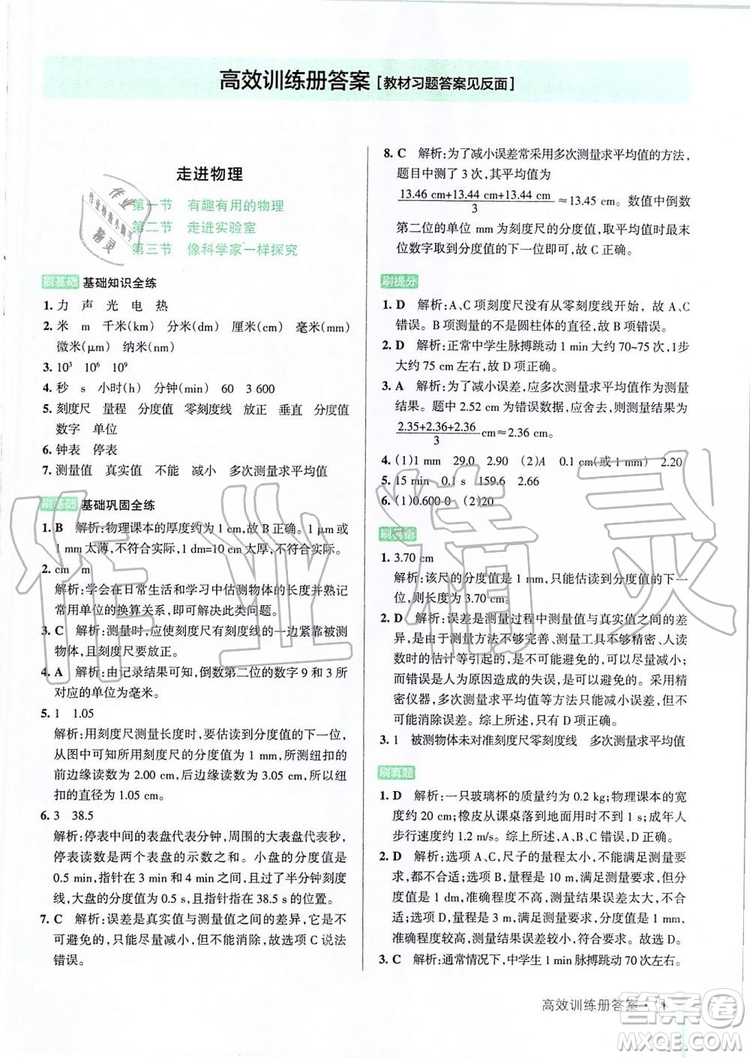 高效训练册答案[教材习题答案见反面]
走进物理
第一节 有趣有用的物理
第二节 走进实验室
第三节 像科学家一样探究
刷基础 基础知识全练
1. 力 声 光 电 热
2. 米 m 千米(km) 分米(dm) 厘米(cm) 毫米(mm)
微米(μm) 纳米(nm)
3. 10³ 10⁶ 10⁹
4. 秒 s 小时(h) 分钟(min) 60 3 600
5. 刻度尺 量程 分度值 零刻度线 放正 垂直 分度值
数字 单位
6. 钟表 停表
7. 测量值 真实值 不能 减小 多次测量求平均值
刷基础 基础巩固全练
1. B 解析:物理课本的厚度约为 1 cm,故 B 正确。1 μm 或
1 mm 太薄,不符合实际;1 dm 太厚,不符合实际。
2. cm m
解析:学会在日常生活和学习中估测物体的长度并熟记
常用单位的换算关系此类问题。
3. C 解析:测量时,应使刻度尺有刻度的一边紧靠被测物
体,且刻度尺要放正。
4. A 解析:由记录结果可知,倒数第二位的数字 9 和 3 所
对应的单位为毫米。
5. 1 1.05
解析:用刻度尺测量长度时,要估读到分度值的下一位,
从图中可知,所用刻度尺的分度值为 1 mm,纽扣的
前边缘读数为 2.00 cm,后边缘读数为 3.05 cm,所以
直径为 1.05 cm。
6. 3 38.5
解析:停表中间的表盘代表分钟,周围的大表盘代表秒,
停表读数是两个表盘的示数之和。小盘的分度值是
0.5 min,指针在 3 和 4 之间,且过了半分钟刻度
线,大盘的分度值为 0.5 s,指针在 38.5 s 处。
7. C 解析:误差是真实值与测量值之间的差异,它是不
可避免的,只能尽可能的减小,故选项 C 说法
错误。
8. C 解析:为了减小误差常采用多次测量求平均值的方法,
题中测量了 3 次,其平均值为
13.46 cm+13.44 cm+13.45 cm/3 ≈ 13.45 cm。数值中倒数
第二位的单位 mm 为刻度尺的分度值,取平均值时最末
位数字取到分度值的下一位即可,故 C 正确。
刷提分
1. D 解析:A、C 项刻度尺没有从零刻度线开始,故 A、C
错误。B 项测量的不是圆柱体的直径,故 B 错误。
2. D 解析:正常中学生脉搏跳动 1 min 大约 70~75 次,1步
大约 75 cm 左右,故 D 项正确。
3. A 解析:为了减小误差,应多次测量求平均值作为测量
结果。题中 2.52 cm 是错误数据,应舍去,则测量结果为
2.35+2.36+2.36/3 cm≈2.36 cm。
4. (1)1 mm 29.0 2.90 (2)A 10.0 mm 1 mm 2.20
5. 15 min 0.1 s 159.6 2.66
6. (1)0.600 0 (2)20
1. 3.70 cm
解析:该尺的分度值为 1 mm,估读到分度值的下一位,所以
长度为 3.70 cm。
2. D 解析:误差是测量值与真实值之间的差
异,是由于测量方法不够完善、测量工具不够精确、人
的估计等引起的,是不可避免的,只能尽可能减小;
错误是人为原因造成的失误,是可以避免的。采用精
密仪器,多次测量求平均值等方法只能减小误差,不
可能消除误差。综上所述,只有 D 项正确。
3. 1 被测物体未对准刻度尺零刻度线 多次测量求平均值
刷真题
1. D 解析:一只玻璃杯的质量约为 0.2 kg;物理课本的宽
度约 20 cm;橡皮从课桌落到地面用时不到 1 s;成人
步行速度约 1.2 m/s。故选项 D 正确。
2. D 解析:选项 A、C,尺子的量程太小,不能用于测量
跳远距离,多次测量导致误差太大,不合适;选项 B,分
度值是 1 dm,太大,不能准确测量跳远成绩,不合适;选
项 D,量程是 3 m,足够用,测量误差小,分度值是 1 cm,
能准确测量,故选 D。
3. C 解析:通常情况下,中学生 1 min 脉搏跳动次数约
高效训练册答案 · 1
答案圈
MXQE.COM
作业精灵